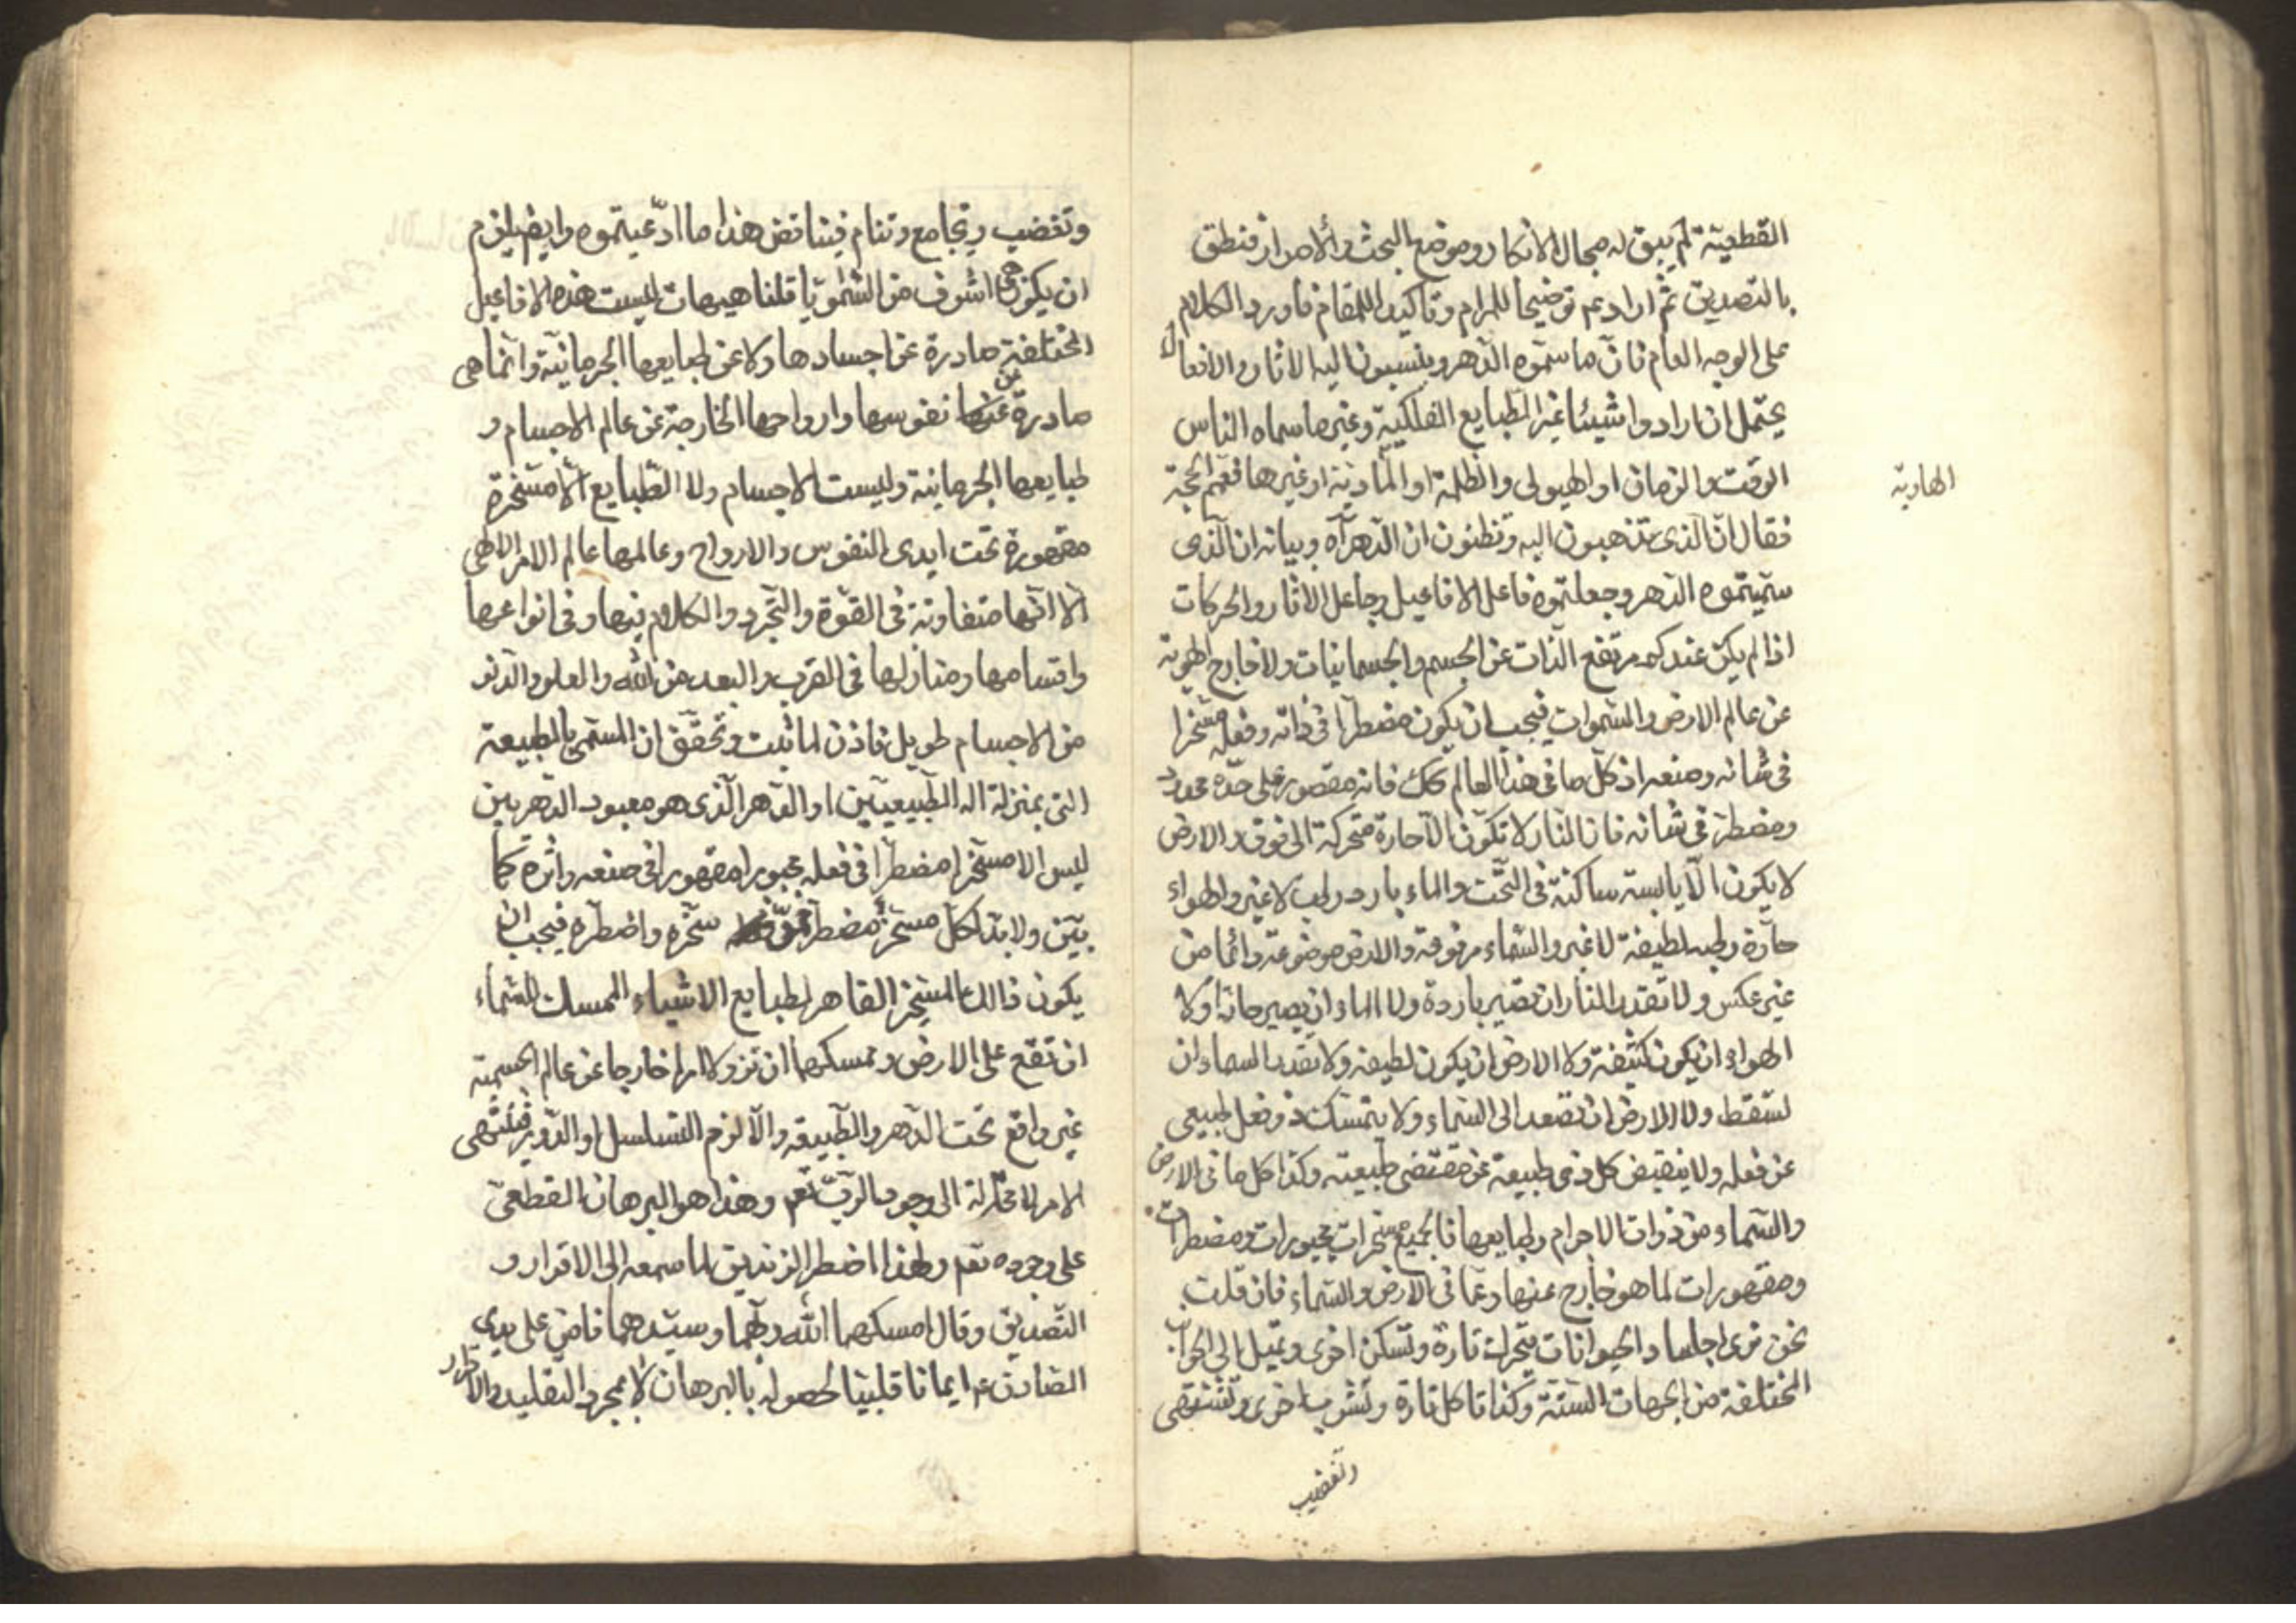 القطعية لم يبق له مجال الانكار وموضع البحث والاصرار فنطق
بالتصديق ثم اراد عم توضيحا للمرام وتاكيدا للمقام فاورد الكلام
على الوجه العام فان ما سموه الدهر وينسبون اليه الاثار والافعال
يحتمل ان ارادوا شيئا غير الطبايع الفلكية وغيرها سماه الناس
الوقت والزمان او الهيولى والظلمة او المادية او غيرها فعمم الحجة
الهاوية
فقال ان الذى تذهبون اليه وتظنون ان الدهر آه وبيانه ان الذى
سميتموه الدهر وجعلتموه فاعل الافاعيل وجاعل الاثار والحركات
اذا لم يكن عندكم مرتفع الذات عن الجسم والجسمانيات ولا خارج الهوية
عن عالم الارض والسموات فيجب ان يكون مضطرا فى ذاته وفعله مسخرا
فى شانه وصنعه اذ كل ما فى هذا العالم كك فانه مقصور على حده محدود
ومضطر فى شانه فان النار لا تكون الا حارة متحركة الى فوق والارض
لا يكون الا يابسة ساكنة فى التحت والماء بارد رطب لا غير والهواء
حارة رطبه لطيفة لا غير والسماء مرفوعة والارض موضوعة دائما من
غير عكس ولا تقدر النار ان تصير باردة ولا الماء ان يصير حارا ولا
الهواء ان يكون كثيفة ولا الارض ان يكون لطيفة ولا تقدر السماء ان
تسقط ولا الارض ان تصعد الى السماء ولا يتمسك ذو فعل طبيعى
عن فعله ولا ينقبض كل ذى طبيعة عن مقتضى طبيعته وكذا كل ما فى الارض
والسماء من ذوات الاجرام وطبايعها فالجميع مسخرات مجبورات ومضطرات
ومقهورات لما هو خارج عنها وعما فى الارض والسماء فان قلت
نحن نرى اجساد الحيوانات تتحرك تارة وتسكن اخرى وتميل الى الجوانب
المختلفة من الجهات الستة وكذا تاكل تارة وتشرب اخرى وتشتهى
وتغضب
وتغضب وتجامع وتنام فيناقض هذا ما ادعيتموه وايضا يلزم
ان يكون هى اشرف من السموت قلنا هيهات ليست هذه الافاعيل
المختلفة صادرة عن اجسادها ولا عن طبايعها الجرمانية وانما هى
صادرة عن نفوسها وارواحها الخارجة عن عالم الاجسام و
طبايعها الجرمانية وليست الاجسام ولا الطبايع الا مسخرة
مقهورة تحت ايدى النفوس والارواح وعالمها عالم الامر الالهى
الا انها متفاوتة فى القوة والتجرد والكلام فيها وفى انواعها
واقسامها ومنازلها فى القرب والبعد من الله والعلو والدنو
من الاجسام طويل فاذن لما ثبت وتحقق ان المسمى بالطبيعة
التى بمنزلة اله الطبيعيين او الدهر الذى هو معبود الدهريين
ليس الا مسخرا مضطرا فى فعله مجبورا مقهورا فى صنعه واثره كما
بين ولا بد لكل مسخر مضطر من سخره واضطره فيجب ان
يكون ذالك المسخر القاهر لطبايع الاشياء الممسك للسماء
ان تقع على الارض وتمسكهما ان تزولا امرا خارجا عن عالم الجسمية
غير واقع تحت الدهر والطبيعة والا لزم التسلسل او الدور فينتهى
الامر لا محالة الى وجود الرب تعم وهذا هو البرهان القطعى
على وجوده تعم ولهذا اضطر الزنديق لما سمعه الى الاقرار و
التصديق وقال امسكهما الله ربهما وسيدهما فامن على يدى
الصادق عم ايمانا قلبيا لحصوله بالبرهان لا بمجرد التقليد والاقرار